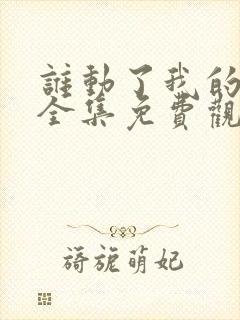 誰動了我的
全集免費觀
旖旎萌妃